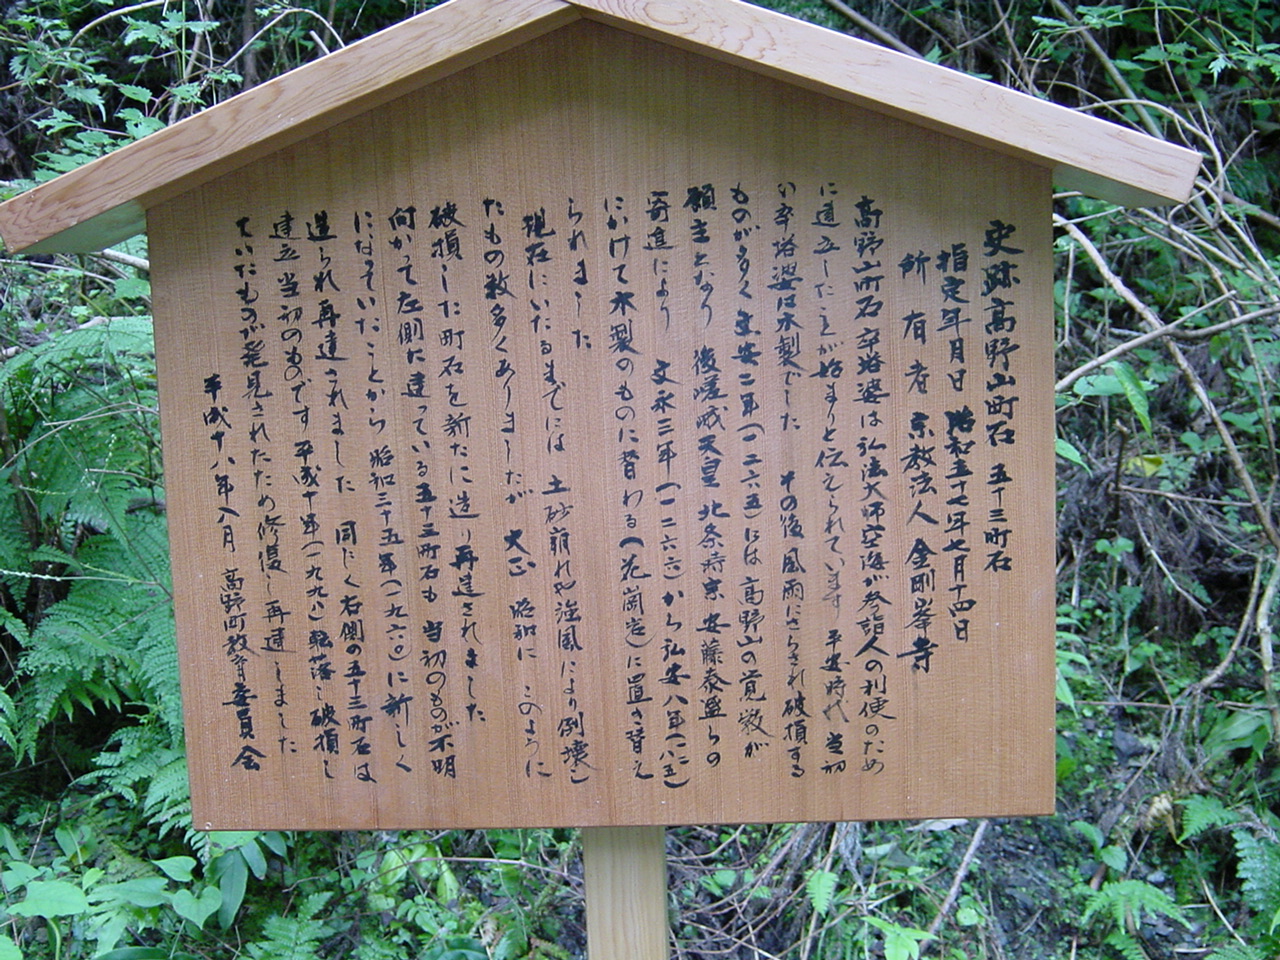 史跡高野山町石 五十三町石
指定年月日 昭和五十七年七月十四日
所有者 宗教法人 金剛峯寺
高野山町石卒塔婆は弘法大師空海が参詣人の利便のため
に造立したことが始まりと伝えられています 平安時代 当初
の卒塔婆は木製でした その後風雨にさらされ破損する
ものが多く 文安二年(一二六五)には 高野山の覚斅が
願主となり 後嵯峨天皇 北条時宗 安藤泰盛らの
寄進により 文永三年(一二六六)から弘安八年(一二八五)
にかけて木製のものに替わる(花崗岩)に置き替え
られました
現在にいたるまでには 土砂崩れや強風により倒壊し
たもの数多くありましたが 大正 昭和に このように
破損した町石を新たに造り再建されました
向かって左側に建っている五十三町石も 当初のものが不明
になっていたことから 昭和三十五年(一九六〇)に新しく
造られ再建されました 同じく右側の五十三町石は
建立当初のものです 平成十年(一九九八)転落し破損し
ていたものが発見されたため修復し再建しました
平成十八年八月 高野町教育委員会